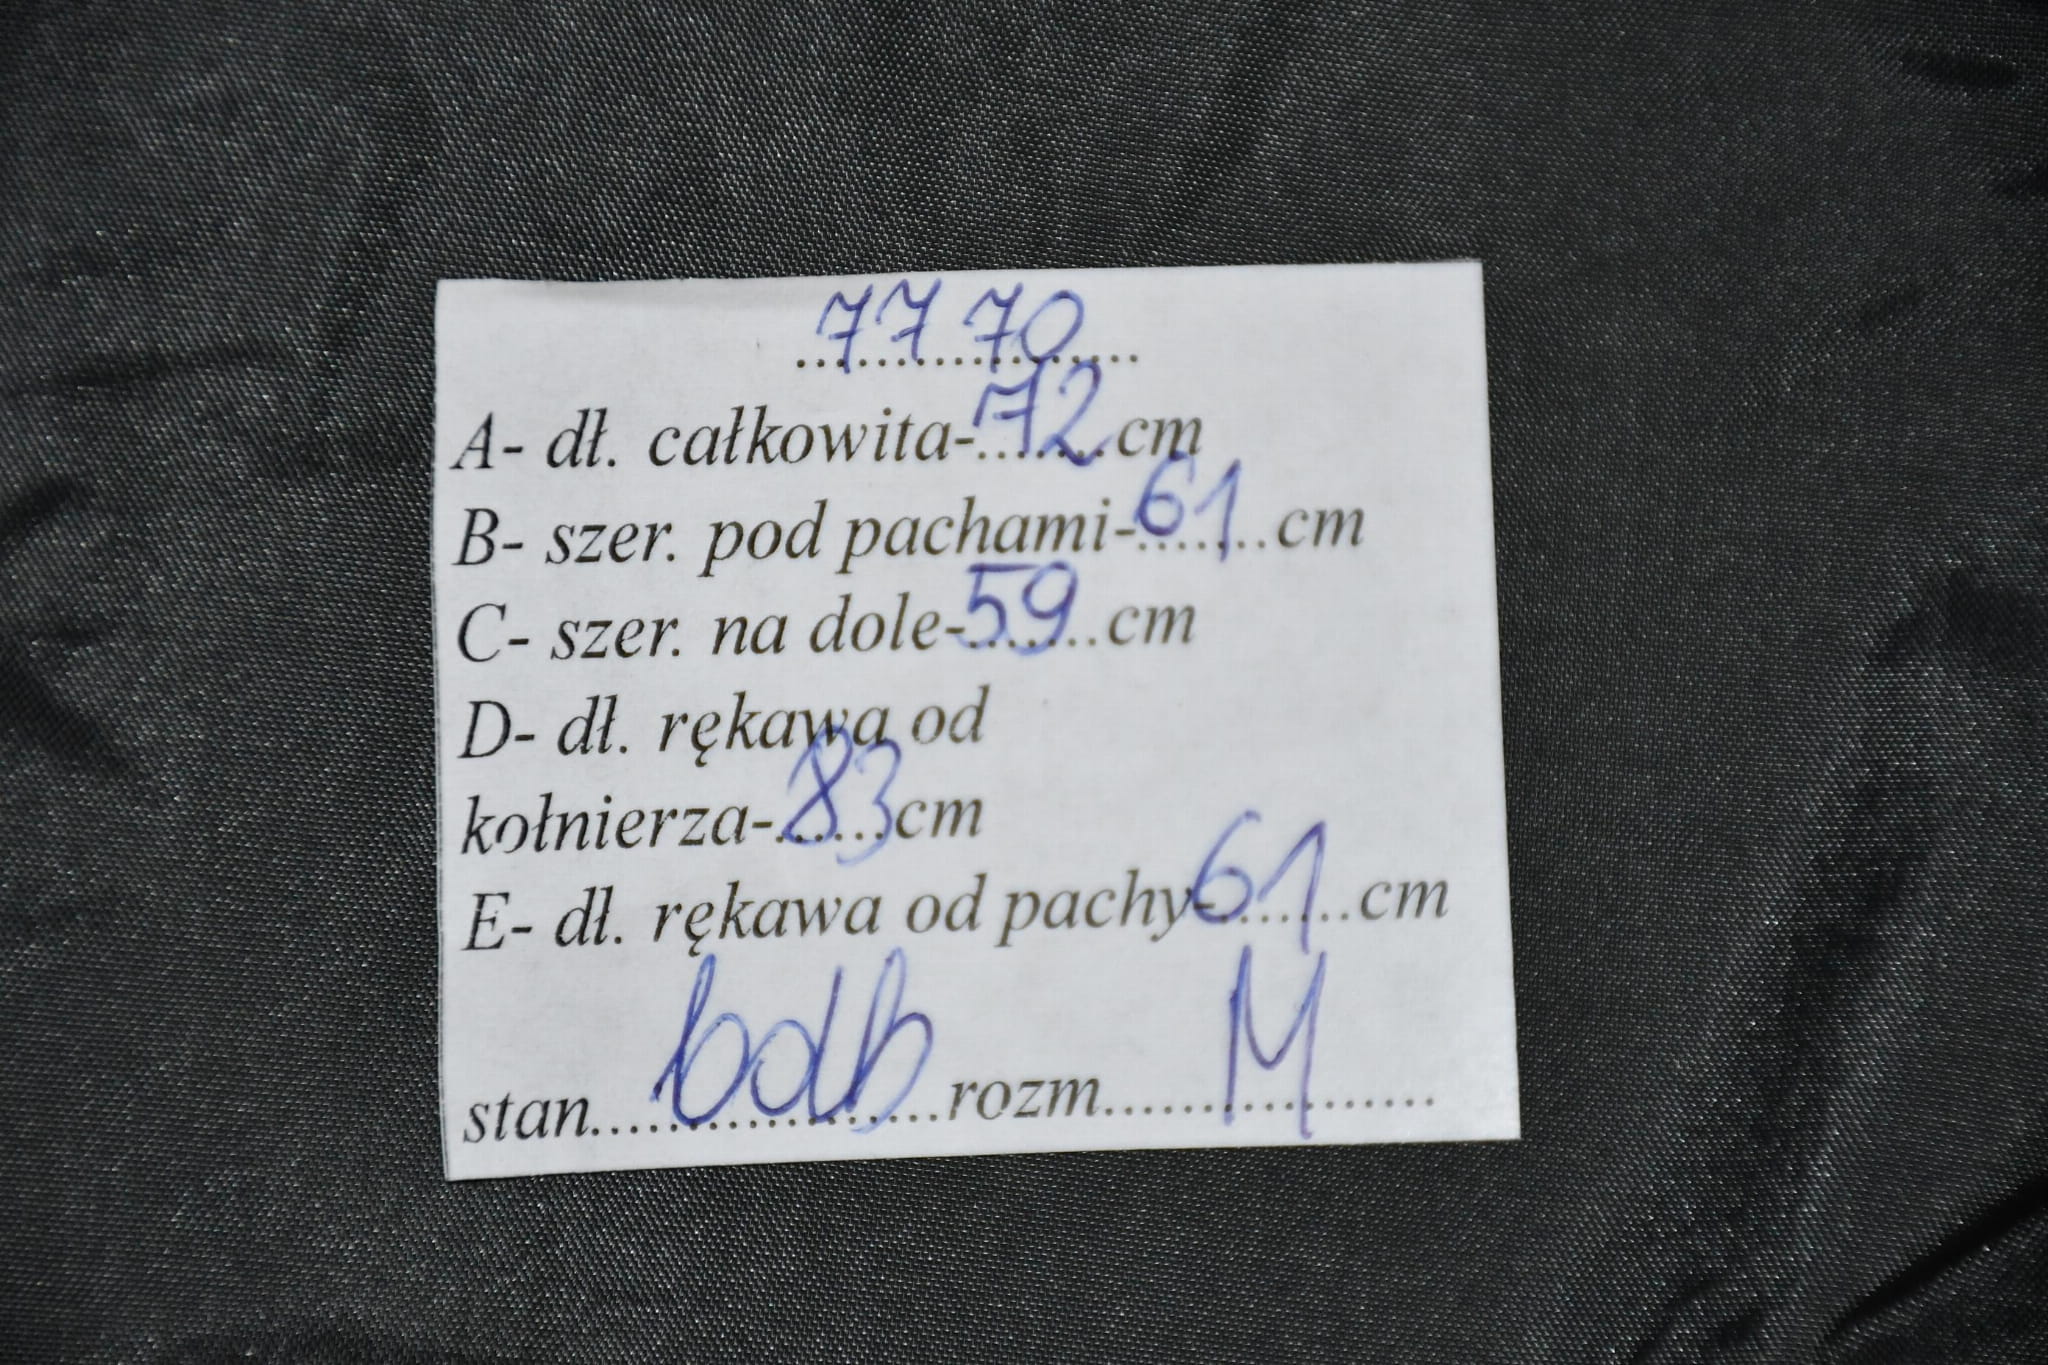 7770
A- dł. całkowita-72cm
B- szer. pod pachami-61cm
C- szer. na dole-59cm
D- dł. rękawa od
kołnierza-83cm
E- dł. rękawa od pachy-61cm
stan bdb rozm M